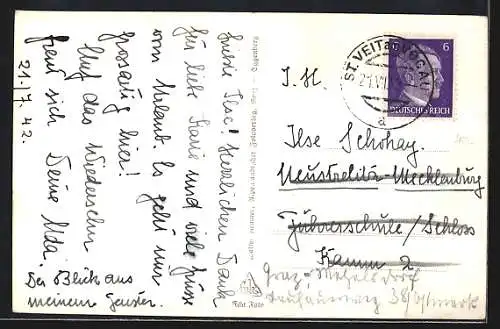 Liebste Ilse! Herzlichen Dank
für liebe Karte und viele Grüsse
vom Urlaub. Es geht mir
grossartig hier!
Auf das Wiedersehen
freut sich Deine Uta.
21./7. 42.
Der Blick aus
meinem Fenster.
Echt Foto
ST. VEIT a. VOGAU
21.VII
a
6 6
DEUTSCHES REICH
Ilse Schohay.
Neustrelitz-Mecklenburg
Führerschule/Schloss
Kamm 2.
Graz - Wetzelsdorf
38/Ostmark